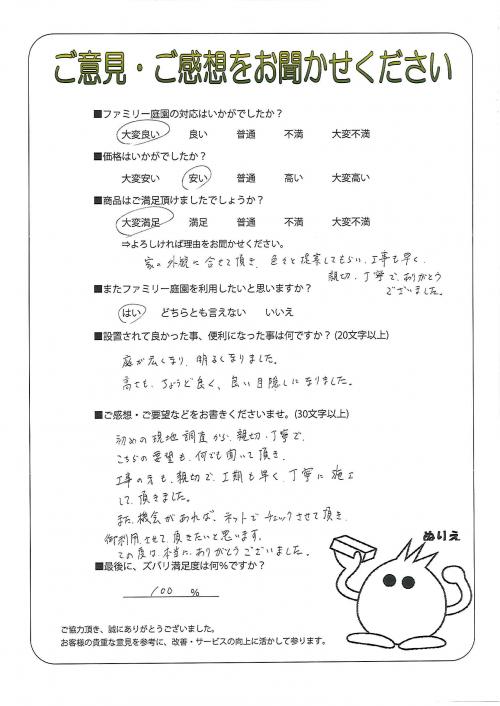 ご意見・ご感想をお聞かせください
■ファミリー庭園の対応はいかがでしたか？
大変良い 良い 普通 不満 大変不満
■価格はいかがでしたか？
大変安い 安い 普通 高い 大変高い
■商品はご満足頂けましたでしょうか？
大変満足 満足 普通 不満 大変不満
⇒よろしければ理由をお聞かせください。
家の外観に合せて頂き、色々と提案してもらい、工事も早く、
親切、丁寧で、ありがとう
ございました。
■またファミリー庭園を利用したいと思いますか？
はい どちらとも言えない いいえ
■設置されて良かった事、便利になった事は何ですか？(20文字以上)
庭が広くなり、明るくなりました。
高さも、ちょうど良く、良い目隠しになりました。
■ご感想・ご要望などをお書きくださいませ。(30文字以上)
初めの現地調査から、親切、丁寧で、
こちらの要望も、何でも聞いて頂き、
工事の方も、親切で、工期も早く、丁寧に施工
して頂きました。
また、機会があれば、ネットでチェックさせて頂き、
御利用させて頂きたいと思います。
この度は、本当に、ありがとうございました。
■最後に、ズバリ満足度は何％ですか？
100 ％
ぬりえ
ご協力頂き、誠にありがとうございました。
お客様の貴重な意見を参考に、改善・サービスの向上に活かして参ります。